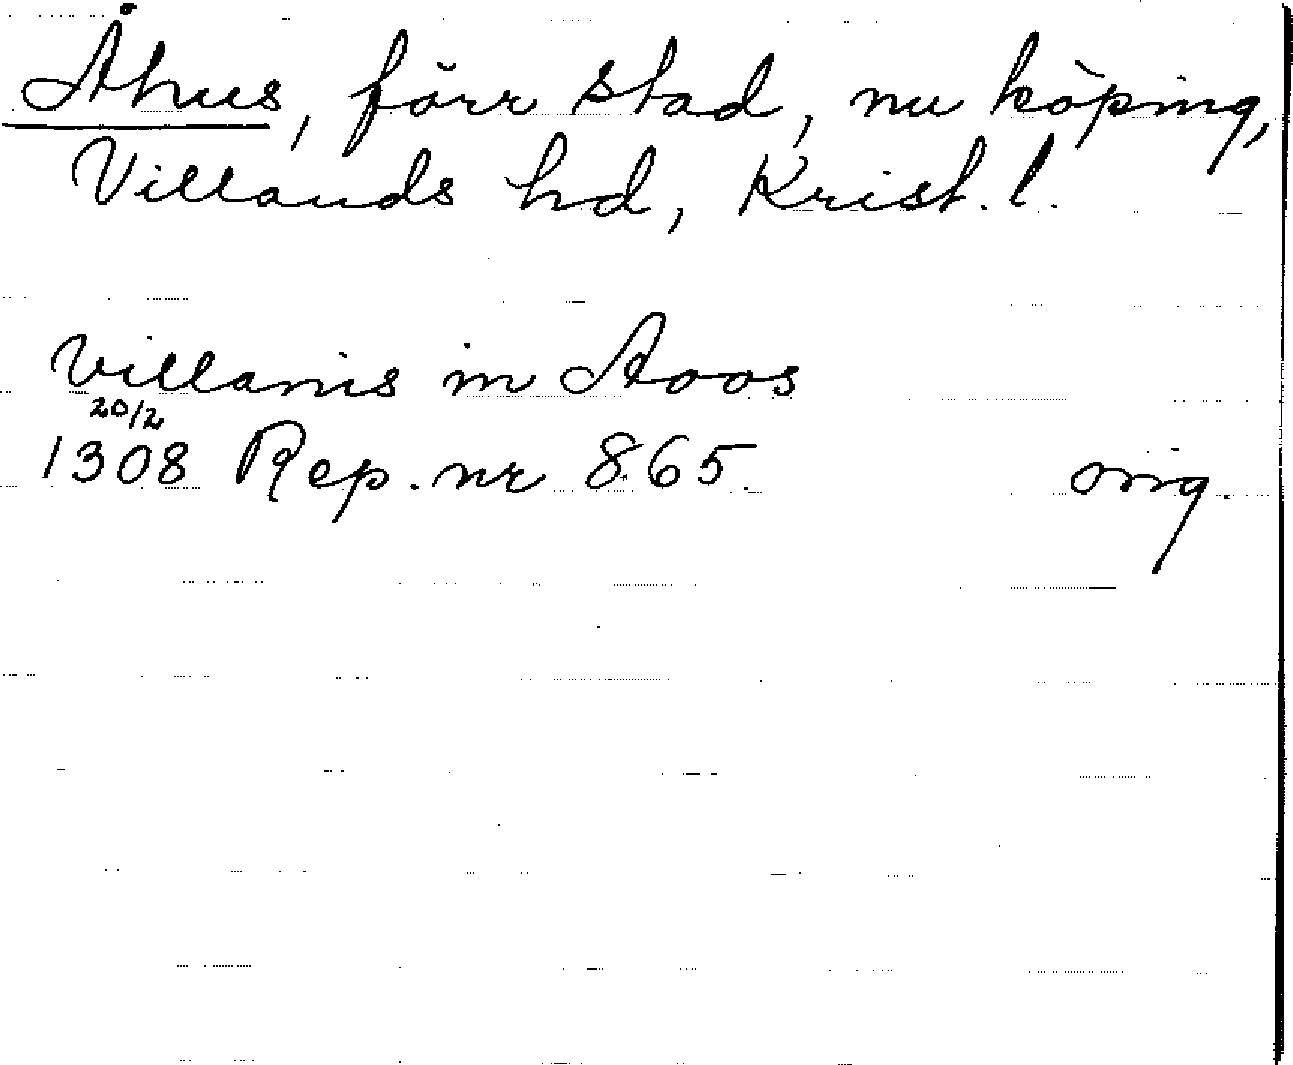 Åhus, förr stad, nu köping,
Villands hd, Krist. l.
villanis in Aoos
20/2
1308 Rep. nr 865. orig.